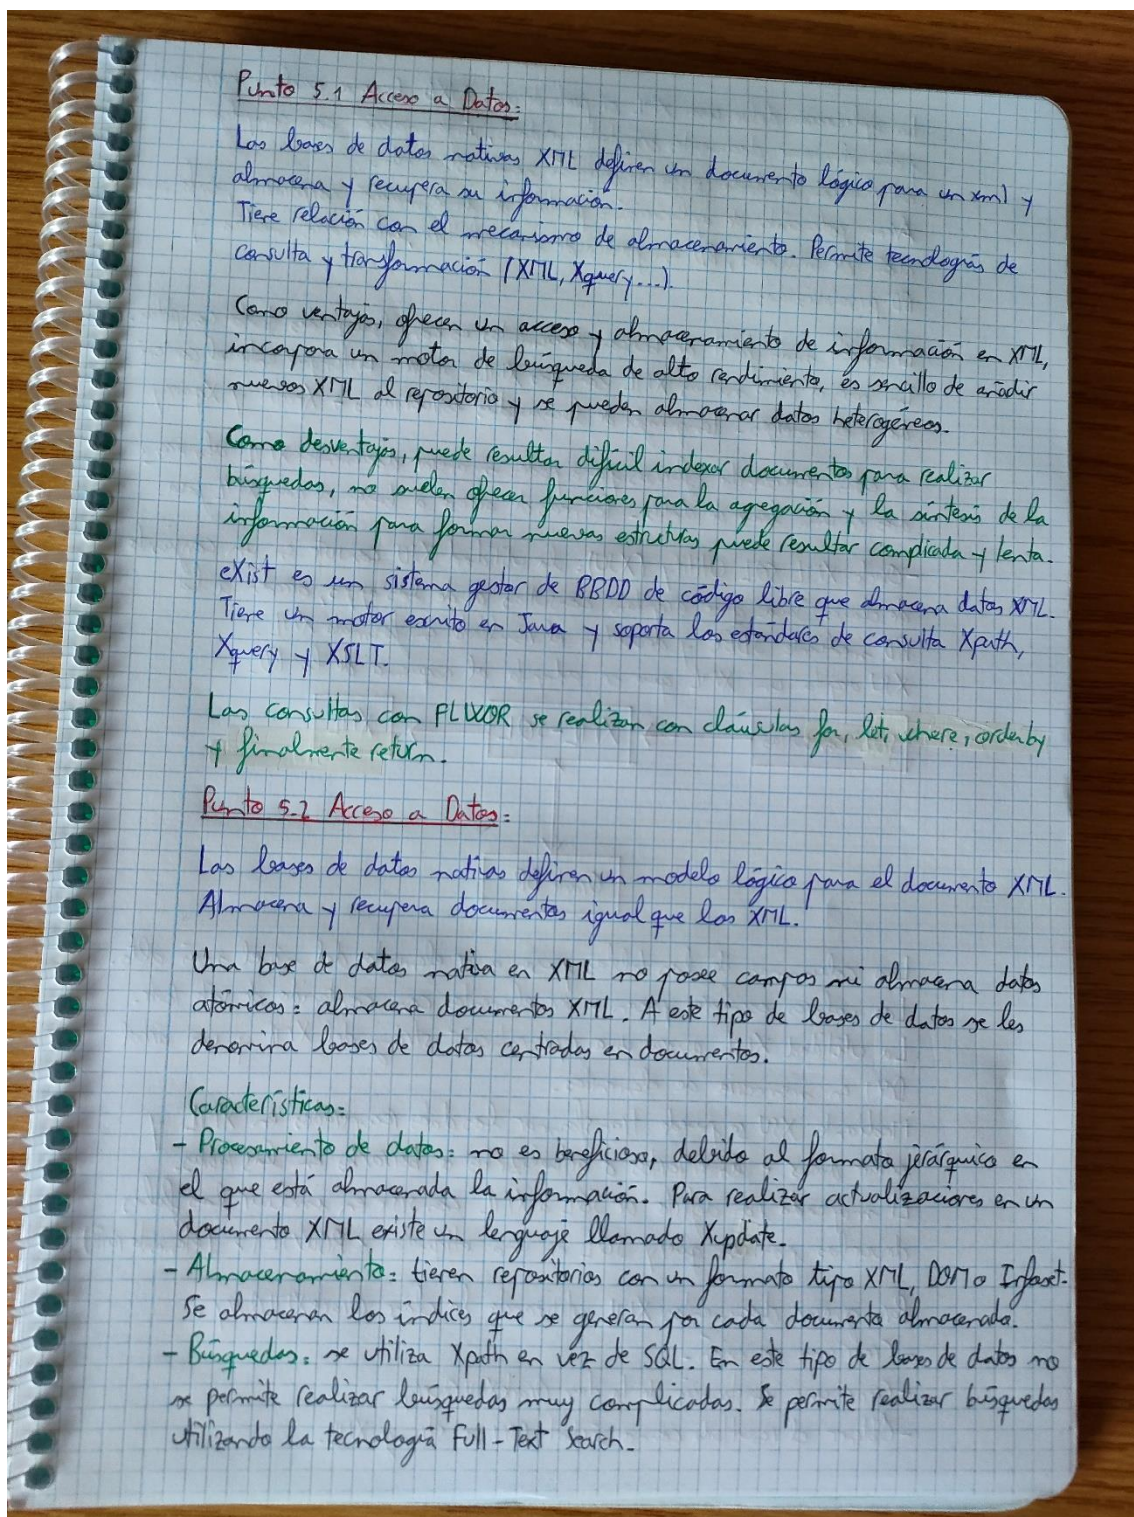 Punto 5.1 Acceso a Datos:
Las bases de datos nativas XML definen un documento lógico para un xml y
almacena y recupera su información.
Tiene relación con el mecanismo de almacenamiento. Permite tecnologías de
consulta y transformación (XML, Xquery...).
Como ventajas, ofrecen un acceso y almacenamiento de información en XML,
incorpora un motor de búsqueda de alto rendimiento, es sencillo de añadir
nuevos XML al repositorio y se pueden almacenar datos heterogéneos.
Como desventajas, puede resultar difícil indexar documentos para realizar
búsquedas, no suelen ofrecer funciones para la agregación y la síntesis de la
información para formar nuevas estructuras puede resultar complicada y lenta.
eXist es un sistema gestor de BBDD de código libre que almacena datos XML.
Tiene un motor escrito en Java y soporta los estándares de consulta Xpath,
Xquery y XSLT.
Las consultas con FLWOR se realizan con cláusulas for, let, where, order by
y finalmente return.
Punto 5.2 Acceso a Datos:
Las bases de datos nativas definen un modelo lógico para el documento XML.
Almacena y recupera documentos igual que los XML.
Una base de datos nativa en XML no posee campos ni almacena datos
atómicos: almacena documentos XML. A este tipo de bases de datos se les
denomina bases de datos centradas en documentos.
Características:
- Procesamiento de datos: no es beneficioso, debido al formato jerárquico en
el que está almacenada la información. Para realizar actualizaciones en un
documento XML existe un lenguaje llamado Xupdate.
- Almacenamiento: tienen repositorios con un formato tipo XML, DOM o Infoset.
Se almacenan los índices que se generan por cada documento almacenado.
- Búsquedas: se utiliza Xpath en vez de SQL. En este tipo de bases de datos no
se permite realizar búsquedas muy complicadas. Se permite realizar búsquedas
utilizando la tecnología Full-Text Search.